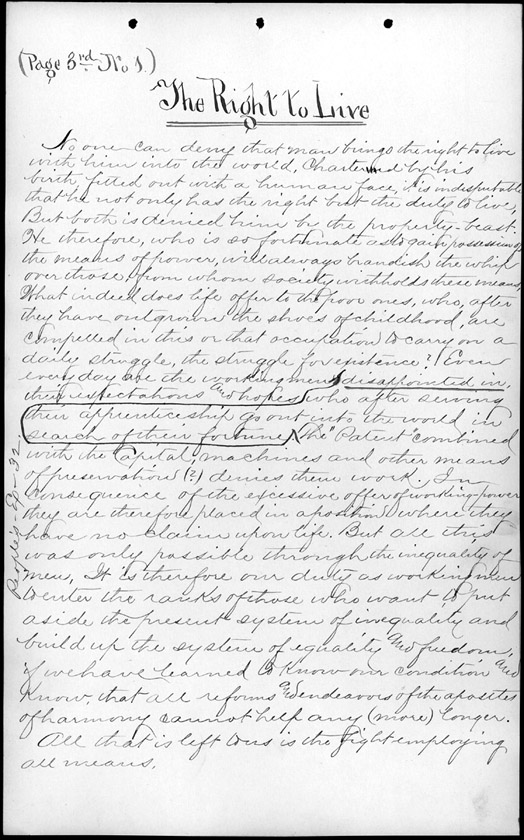 (Page 3rd No 1.)
The Right to Live
No one can deny that man brings the right to live
with him into the world, Chartered by his
birth, fitted out with a human face, it is indisputable
that he not only has the right but the duty to live,
But both is denied him by the property-beast.
He therefore, who is so fortunate as to gain possession of
the means of power, will always brandish the whip
over those, from whom society withholds these means,
What indeed does life offer to the poor ones, who, after
they have outgrown the shoes of childhood, are
compelled in this or that occupation to carry on a
daily struggle, the struggle for existence? Even
every day are the workingmen disappointed in
their expectations and hopes who after serving
their apprenticeship go out into the world in
search of their fortune, The "Patent" combined
with the Capital, machines and other means
of preservation (?) denies them work, In
consequence of the excessive offer of working-power
they are therefore placed in a position where they
have no claim upon life. But all this
was only possible through the inequality of
men, It is therefore our duty as workingmen
to enter the ranks of those who want to put
aside the present system of inequality and
build up the system of equality and freedom,
if we have learned to know our condition and
know, that all reforms and endeavors of the apostles
of harmony cannot help any (more) longer.
All that is left to us is the fight employing
all means.
Ex. 32.